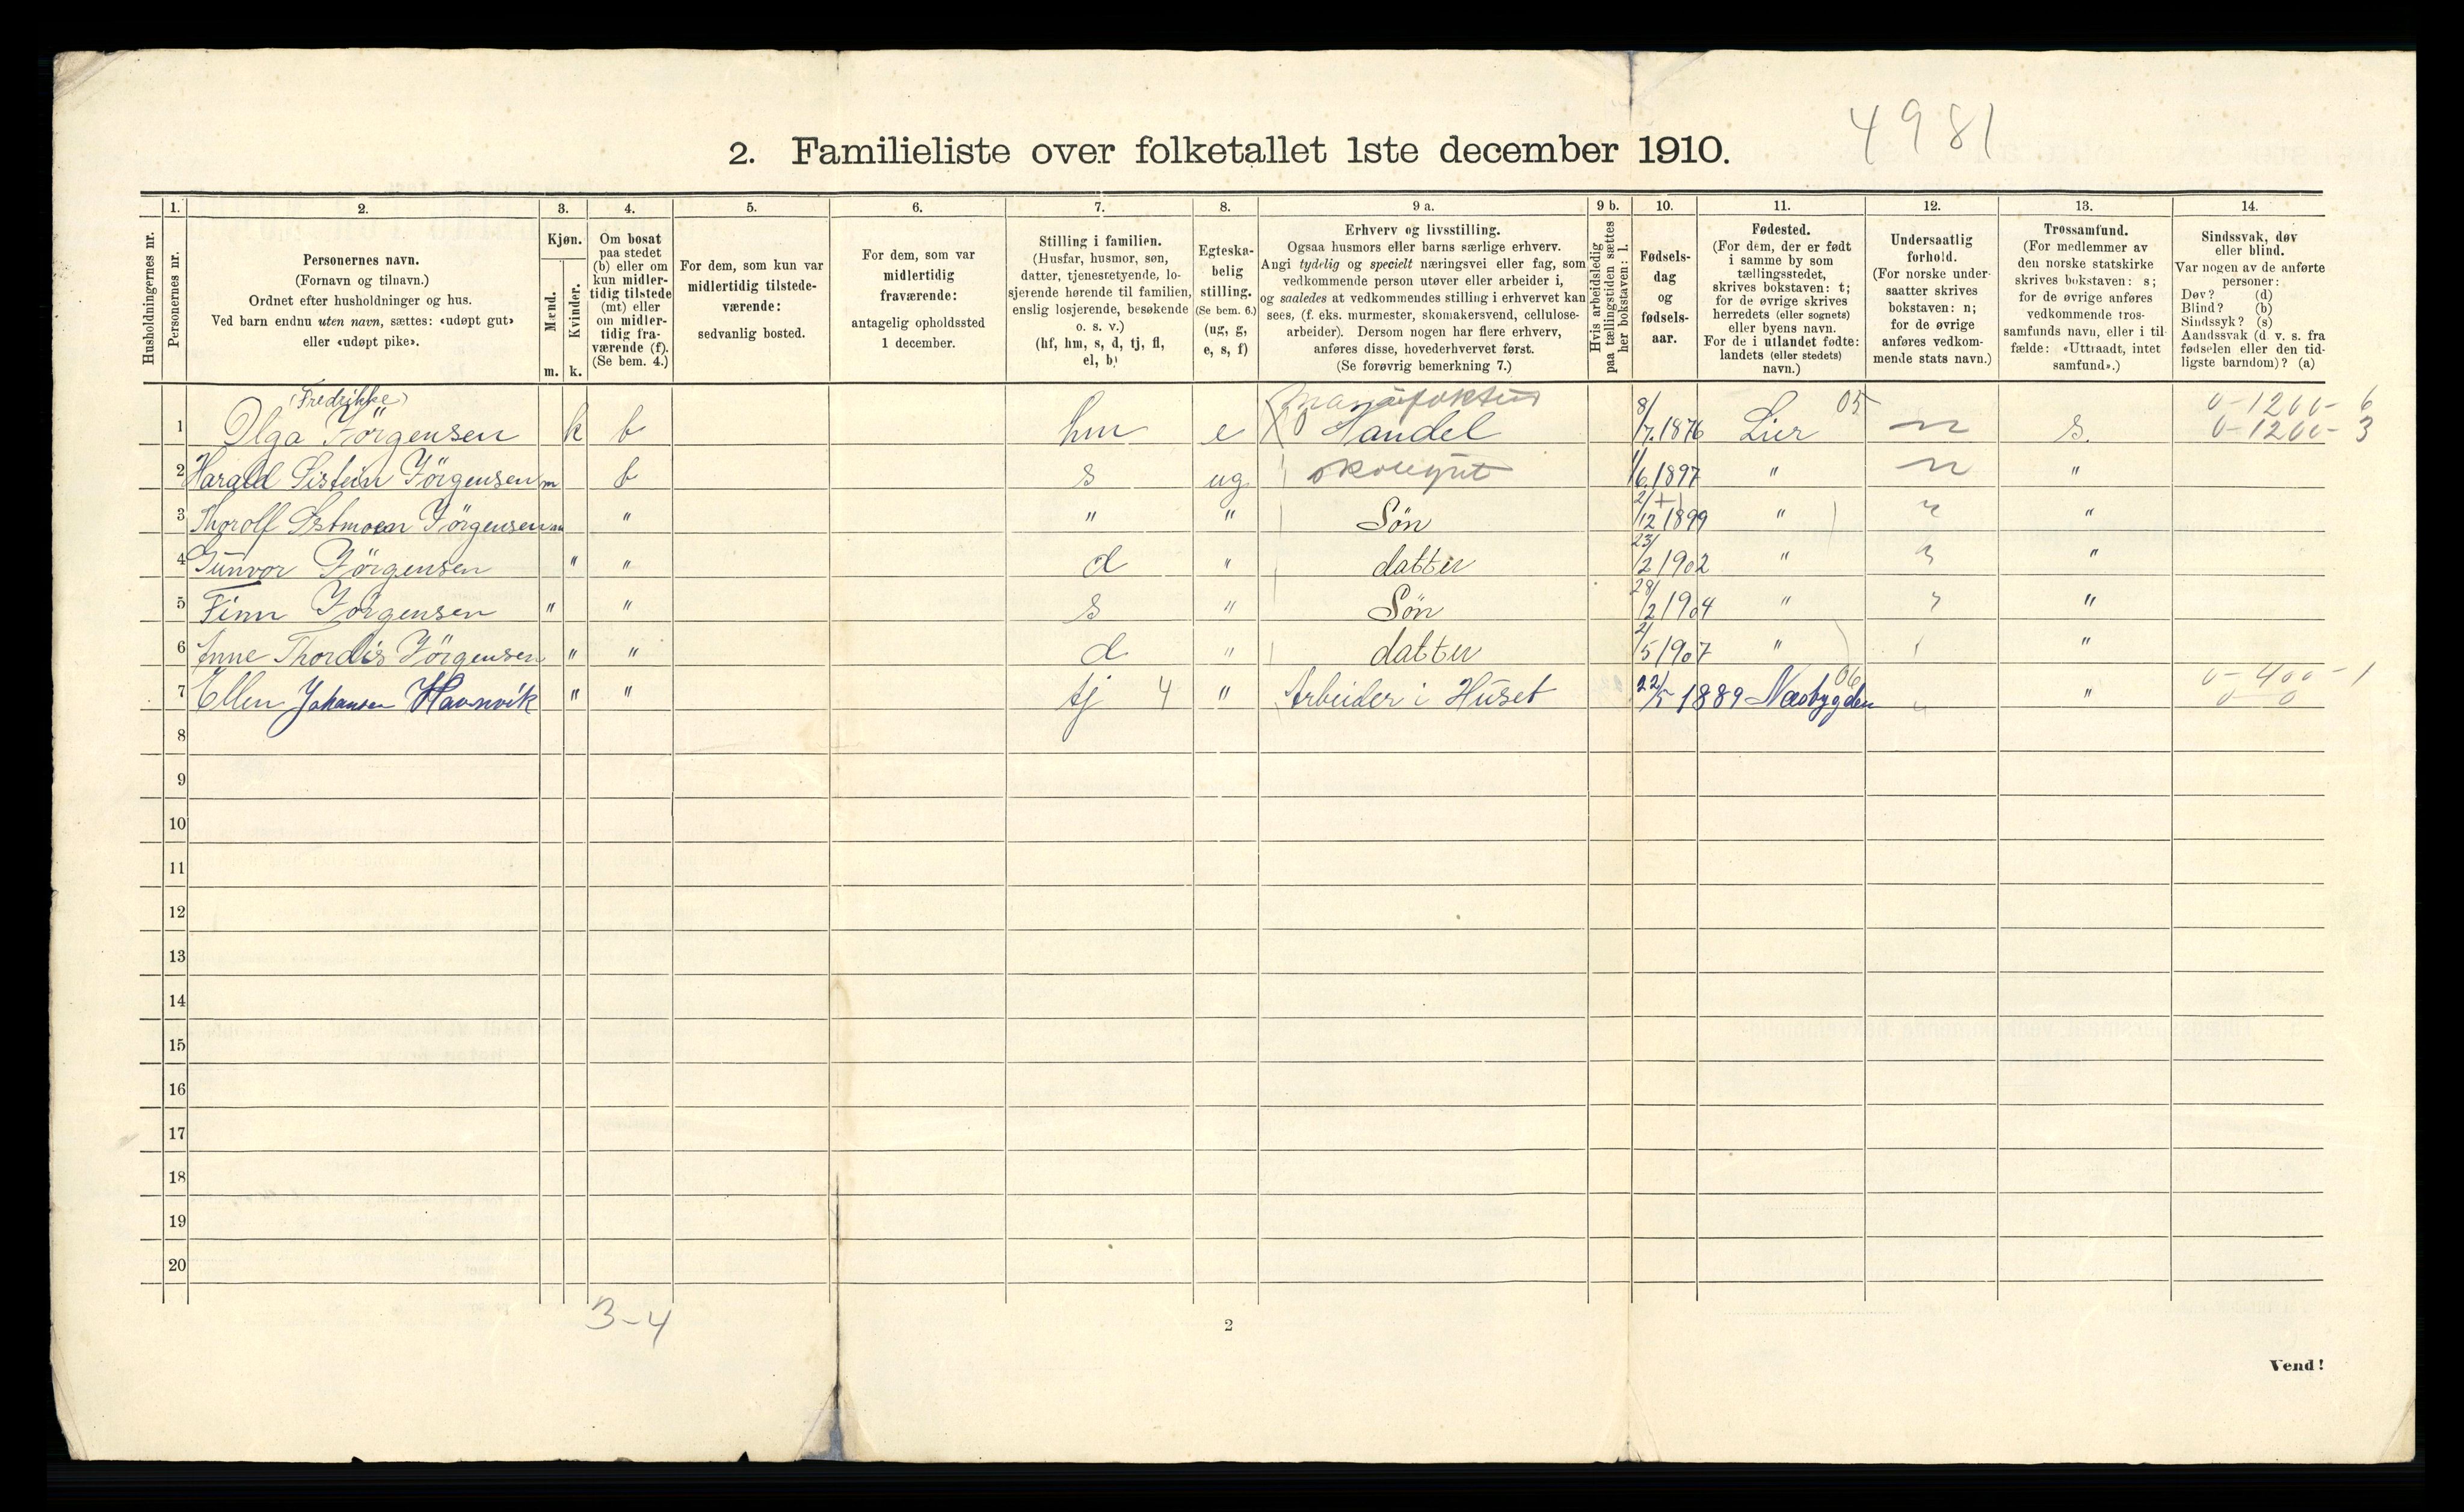 4981
2. Familieliste over folketallet 1ste december 1910.
1. 2. 3. 4. 5. 6. 7. 8. 9 a. 9 b. 10. 11. 12. 13. 14.
Husholdningernes nr.
Personernes nr.
Personernes navn.
(Fornavn og tilnavn.)
Ordnet efter husholdninger og hus.
Ved barn endnu uten navn, sættes: «udøpt gut»
eller «udøpt pike».
Kjøn.
Mænd.
m.
Kvinder.
k.
Om bosat
paa stedet
(b) eller om
kun midler-
tidig tilstede
(mt) eller
om midler-
tidig fra-
værende (f).
(Se bem. 4.)
For dem, som kun var
midlertidig tilstede-
værende:
sedvanlig bosted.
For dem, som var
midlertidig
fraværende:
antagelig opholdssted
1 december.
Stilling i familien.
(Husfar, husmor, søn,
datter, tjenestetyende, lo-
sjerende hørende til familien,
enslig losjerende, besøkende
o. s. v.)
(hf, hm, s, d, tj, fl,
el, b)
Egteska-
belig
stilling.
(Se bem. 6.)
(ug, g,
e, s, f)
Erhverv og livsstilling.
Ogsaa husmors eller barns særlige erhverv.
Angi tydelig og specielt næringsvei eller fag, som
vedkommende person utøver eller arbeider i,
og saaledes at vedkommendes stilling i erhvervet kan
sees, (f. eks. murmester, skomakersvend, cellulose-
arbeider). Dersom nogen har flere erhverv,
anføres disse, hovederhvervet først.
(Se forøvrig bemerkning 7.)
Hvis arbeidsledig
paa tællingstiden sættes
her bokstaven: l.
Fødsels-
dag
og
fødsels-
aar.
Fødested.
(For dem, der er født
i samme by som
tællingsstedet,
skrives bokstaven: t;
for de øvrige skrives
herredets (eller sognets)
eller byens navn.
For de i utlandet fødte:
landets (eller stedets)
navn.)
Undersaatlig
forhold.
(For norske under-
saatter skrives
bokstaven: n;
for de øvrige
anføres vedkom-
mende stats navn.)
Trossamfund.
(For medlemmer av
den norske statskirke
skrives bokstaven: s;
for de øvrige anføres
vedkommende tros-
samfunds navn, eller i til-
fælde: «Uttraadt, intet
samfund».)
Sindssvak, døv
eller blind.
Var nogen av de anførte
personer:
Døv? (d)
Blind? (b)
Sindssyk? (s)
Aandssvak (d. v. s. fra
fødselen eller den tid-
ligste barndom)? (a)
(Fredrikke) Manufaktur 05 0-1200-6
1 Olga Jörgensen k b hm e X0 Handel 8/7.1876 Lier n s. 0-1200-3
2 Harald Sistein Jörgensen m b s ug skolegut 1/6.1897 " n "
3 Thorolf Jörgensen m " " " Søn 2/12 1899 " " "
4 Gunvor Jörgensen " " d " datter 23/2 1902 " " "
5 Finn Jörgensen " " s " Søn 28/2 1904 " " "
6 Anne Thordis Jörgensen " " d " datter 2/5 1907 " "
06 0-400-1
7 Ellen Johansen Havnvik " " tj 4 " Arbeider i Huset 22/5 1889 Næsbygden " " 0-0
8
9
10
11
12
13
14
15
16
17
18
19
20
3-4
2
Vend!